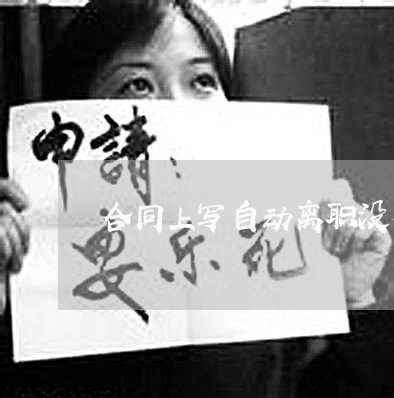 申請：
合同上写自动离职没
乐死